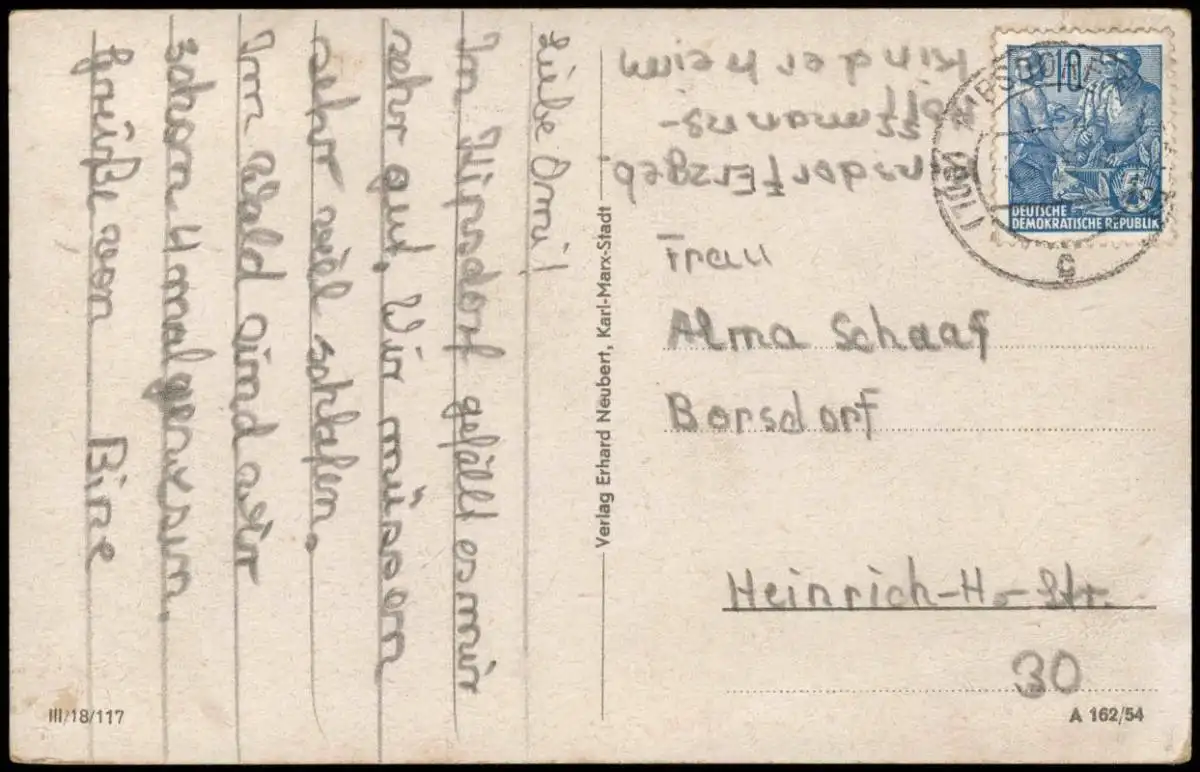 Liebe Omi!
gefällt esmir
sehr gut. Wir müssen
sehr viel schlafen.
Im Wald sind wir
schon 4 mal gewesen.
Grüße von Bine
Erzgeb
Kinderheim
Verlag Erhard Neubert, Karl-Marx-Stadt
10
DEUTSCHE
DEMOKRATISCHE REPUBLIK
c
Frau
Alma Schaaf
Borsdorf
Heinrich-H.-Str.
30
III/18/117
A 162/54